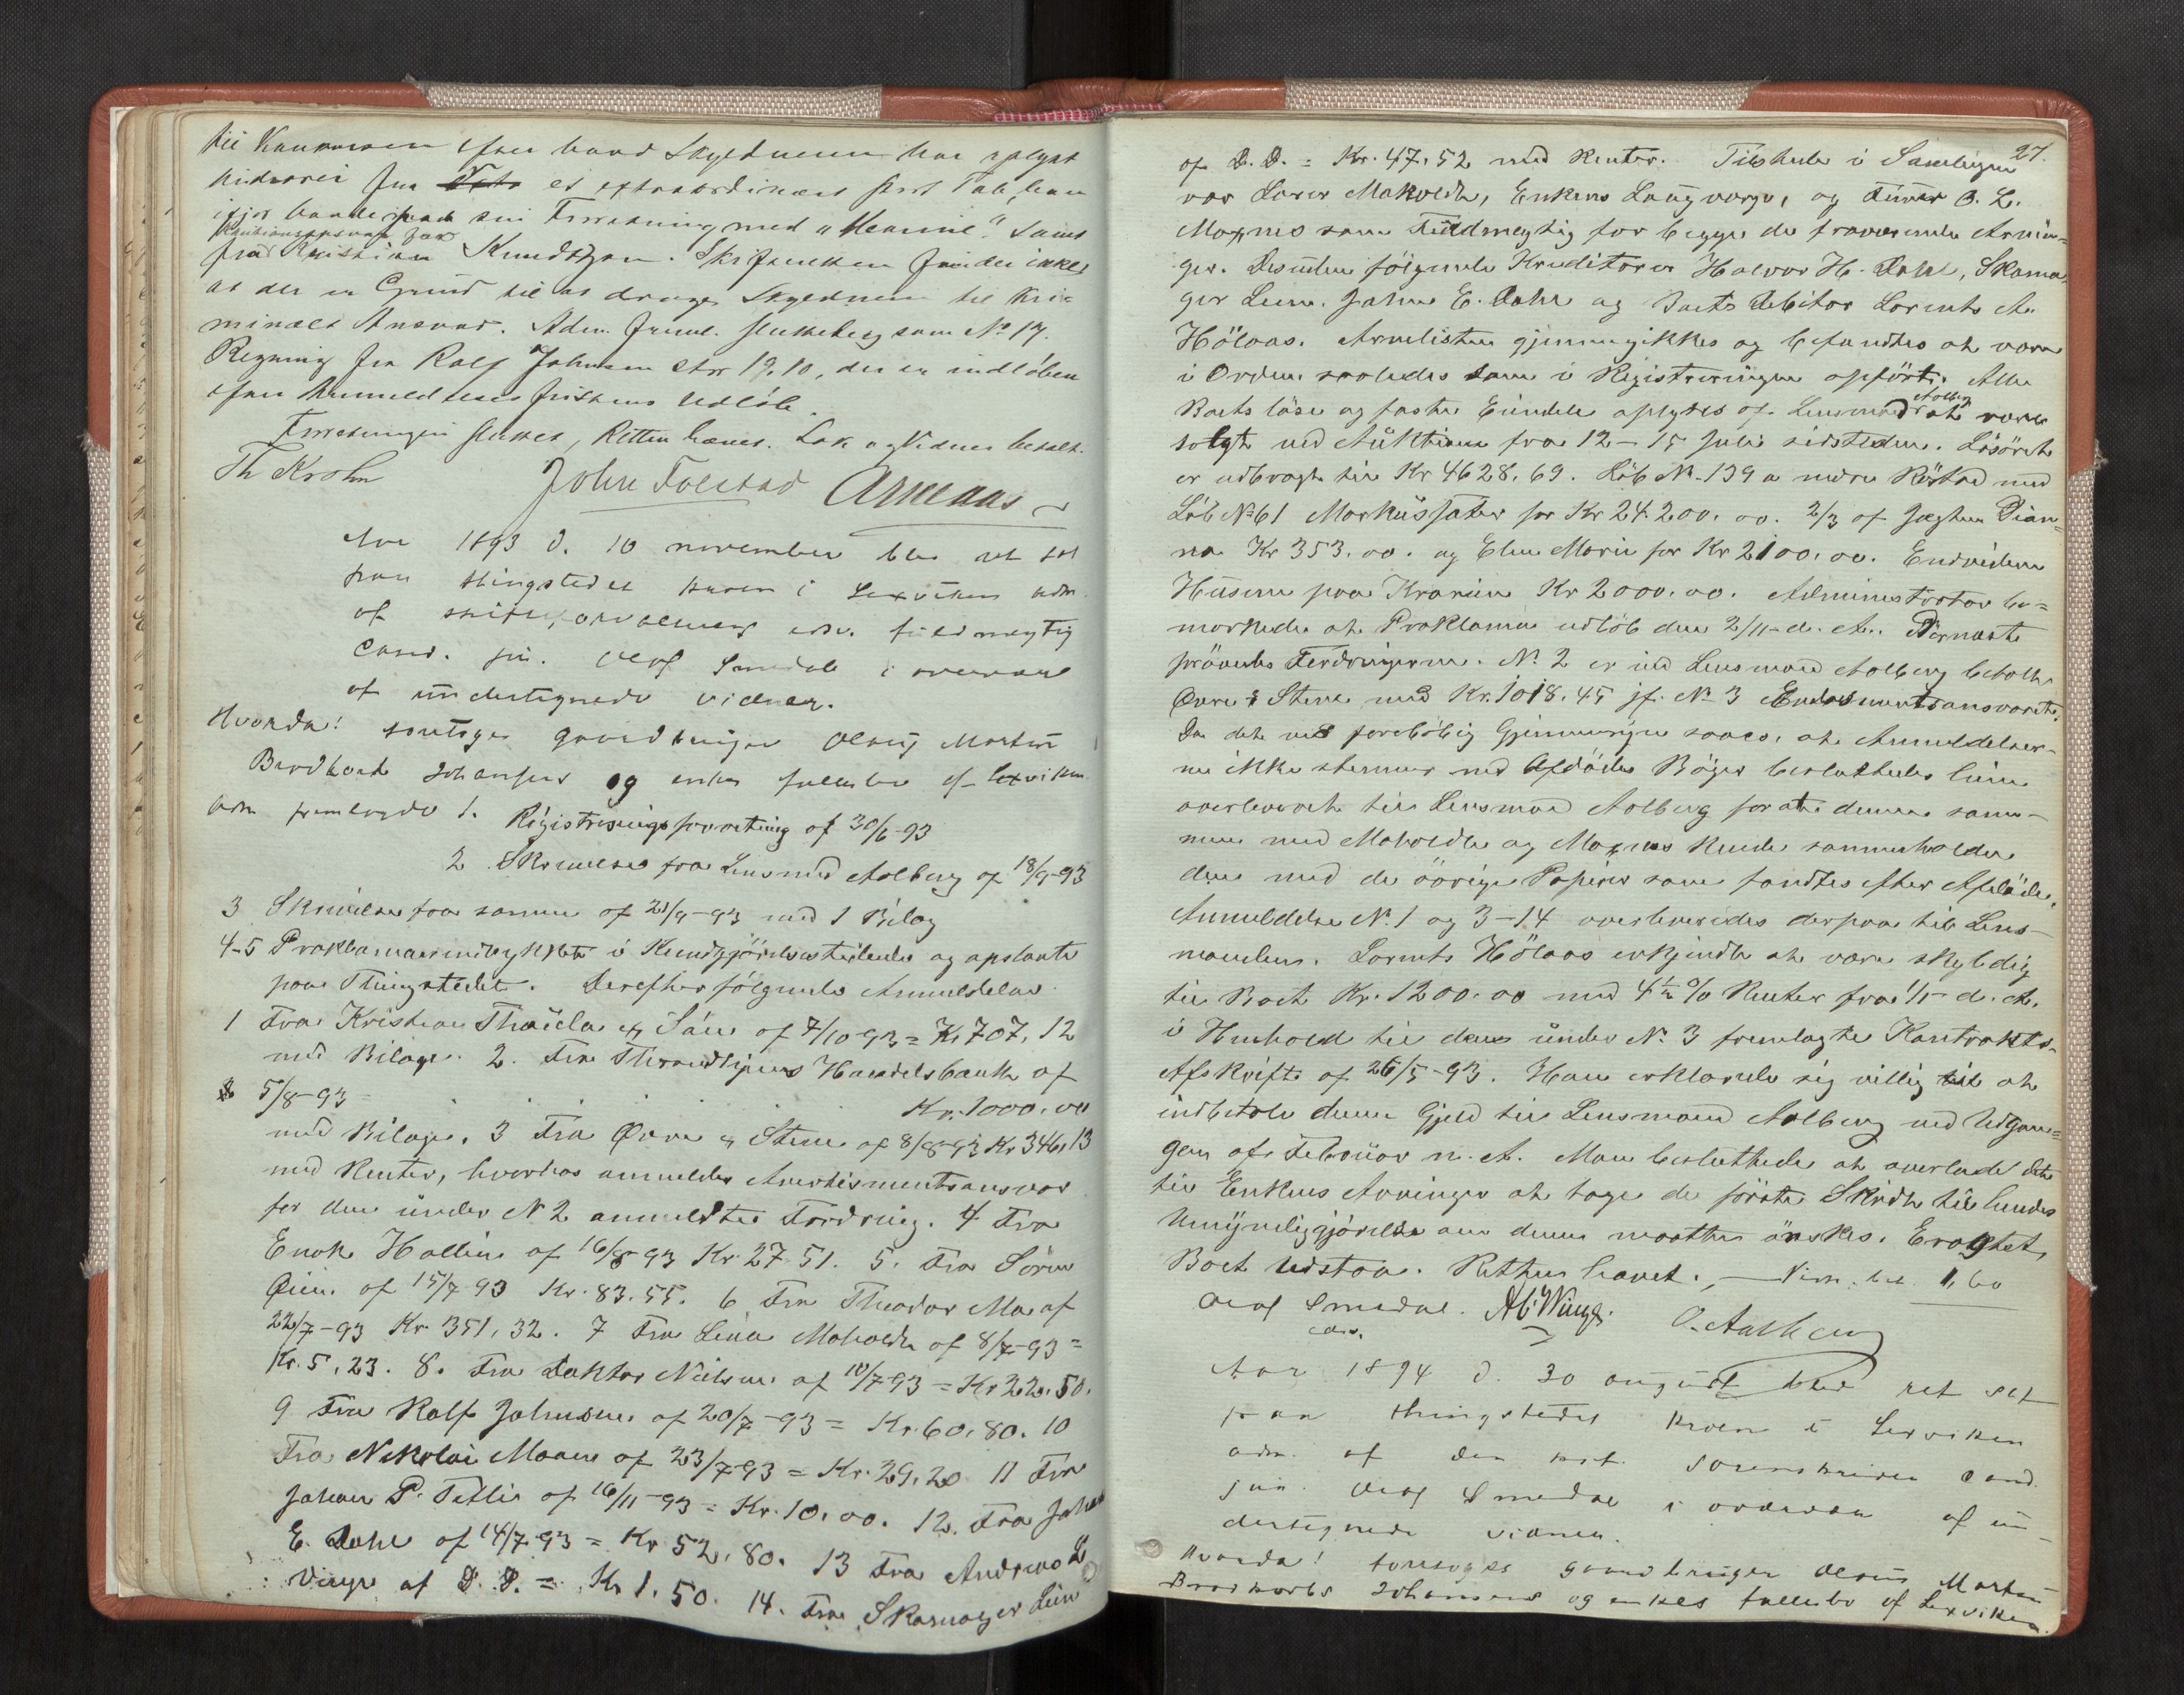 til Konkursen efter hvad Skyldneren har oplyst
hidrører fra et extraordinært stort Tab, han
ifjor havde paa sin Forretning med "Marine" samt
Kautionsansvar for
frå Kristian Knudtzon. Skifteretten finder ikke
at der er Grund til at drage Skyldneren til kri-
minelt Ansvar. Adm. freml. sluttelig som No 17.
Regning fra Rolf Johnsen stor 19,10, der er indløben
efter Anmeldelsesfristens Udløb.
Forretningen sluttet, Retten hævet. Lok og Vidner betalt.
Th Krohn John Folstad Asmaas
Aar 1893 d. 10 november blev ret sat
paa thingstedet kroen i Lexviken adm.
af skifteforvalterens edsv. fuldmægtig
cand. jur. Olaf Smedal i overvær
af undertegnede vidner.
Hvorda! foretoges gaardbruger Olaus Martin
Brodtkorb Johansens og enkes fællesbo af Lexviken
Adm fremlagde 1. Registreringsforretning af 30/6-93
2 Skrivelse fra Lensmd Aalberg af 18/9-93
3 Skrivelse fra samme af 21/9-93 med 1 Bilag
4-5 Proklama indrykket i Kundgjørelsestidende og opslaaet
paa Thingstedet. Derefter følgende Anmeldelser.
1 Fra Kristian Thaulow & Søn af 7/10-93 = Kr 707,12
med Bilage. 2. Fra Throndhjems Handelsbank af
5/8-93 Kr. 1000.00
med Bilage. 3 Fra Øvre & Steen af 8/8-93 Kr 346,13
med Renter, hvorhos anmeldes Avertismentsansvar
for den under N 2 anmeldte Fordring. 4 Fra
Enok Hollin af 16/8 93 Kr 27.51. 5. Fra Sören
Öien af 15/7 93 Kr. 83.55. 6 Fra Theodor Moe af
22/7-93 Kr. 351,32. 7 Fra Lina Moholdt af 8/7-93 =
Kr. 5,23. 8. Fra Doktor Nielsen af 10/7-93 = Kr 22.50.
9 Fra Rolf Johnsen af 20/7-93 = Kr. 60,80. 10
Fra Nikolai Moan af 23/7-93 = Kr. 29,20 11 Fra
Johan P. Tetlie af 16/11-93 = Kr. 10.00. 12. Fra Johan
E. Dahl af 14/7-93 = Kr 52,80. 13 Fra Andreas L
Vinge af D. D. = Kr 1.50. 14. Fra Skomager Lien
27.
af D. D. = Kr. 47,52 med Renter. Tilstede i Samlingen
var Lorns Moholdt, Enkens Laugværge, og Einar O. L.
Moxnes som Fuldmægtig for begge de fraværende Arvin-
ger. Desuden følgende Kreditorer Halvor H. Dahl, Skoma
ger Lien. Johan E. Dahl og Boets Debitor Lornts A.
Hölaas. Arvelisten gjennemgikkes og befandtes at være
i Orden saaledes som i Registreringen opført. Alle
Boets löse og faste Eiendele oplystes af Lensmand Aalberg at være
solgt ved Auktion fra 12-15 Juli sidstleden. Lösöret
er udbragt til Kr 4628.69. Löb No. 139 a nedre Röstad med
Löb No 61 Markussæter for Kr 24.200.00. 2/3 af Jægten Dian-
na Kr 353.00. og Elen Marie for Kr 2100.00. Endvidere
Husene paa Kroren Kr 2000.00. Administrator be-
mærkede at Proklama udløb den 2/11 d. A. Dernæst
prövedes Fordringerne. No. 2 er ved Lensmand Aalberg betalt
Övre & Steen med Kr. 1018.45 jf. No 3 Endossementsansvaret.
Da det ved foreløbig Gjennemsyn saaes, at Anmeldelser-
ne ikke stemmer med Afdödes Böger besluttedes disse
overleveret til Lensmand Aalberg forat denne sam-
men med Moholdt og Moxnes kunde sammenholde
dem med de övrige Papirer som fandtes efter Afdöde.
Anmeldelse No. 1 og 3-14 overleveredes derpaa til Lens-
manden. Lornts Hölaas erkjendte at være skyldig
til Boet Kr. 1200.00 med 4½ % Renter fra 1/5 d. A.
i Henhold til den under No 3 fremlagte Kontrakts-
Afskrift af 26/5-93. Han erklærede sig villig til at
indbetale denne Gjeld til Lensmand Aalberg ved Udgan-
gen af Februar n. A. Man besluttede at overlade det
til Enkens Arvinger at tage de förste Skridt til hendes
Umyndiggjörelse om denne maatte önskes. Eragtet,
Boet udstaa. Retten hævet. — Vidn. bet. 1,60
Olaf Smedal. A. Winge. O. Aalberg
edsv.
Aar 1894 d. 30 august blev ret sat
paa thingstedet kroen i Lexviken
adm. af den kst. sorenskriver cand.
jur. Olaf Smedal i overvær af un-
dertegnede vidner.
Hvorda! foretoges gaardbruger Olaus Martin
Brodtkorbs Johansens og enkes fællesbo af Lexviken.